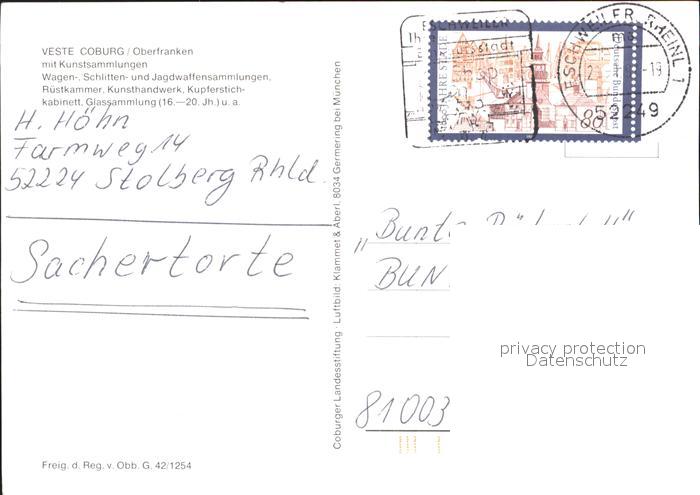 VESTE COBURG / Oberfranken
mit Kunstsammlungen
Wagen-, Schlitten- und Jagdwaffensammlungen,
Rüstkammer, Kunsthandwerk, Kupferstich-
kabinett, Glassammlung (16.—20. Jh.) u. a.
H. Höhn
Farmweg 14
52224 Stolberg Rhld.
Sachertorte
Freig. d. Reg. v. Obb. G. 42/1254
Coburger Landesstiftung · Luftbild: Klammet & Aberl, 8034 Germering bei München
ESCHWEILER
ESCHWEILER, RHEINL 1
52249
80
„Bunte
BUN
81003
privacy protection
Datenschutz